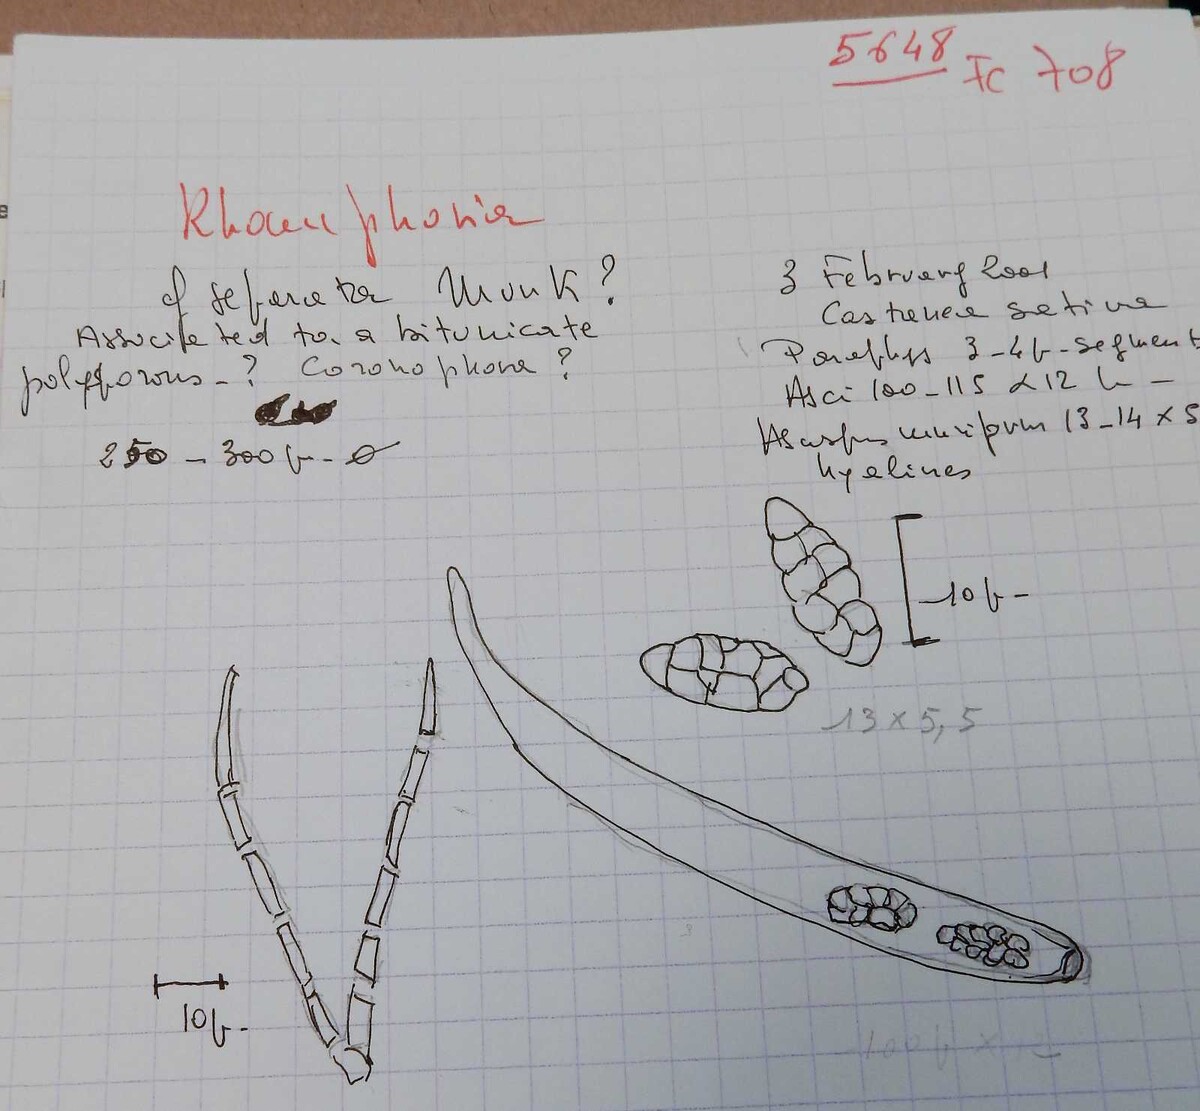 5648
Fc 708
Rhamphoria
cf separata Munk?
Associated to a bitunicate
polysporous-? Coronophora?
250 - 300 µ - ø
3 February 2001
Castanea sativa
Paraphys 3-4µ-segment
Asci 100-115 x 12 µ -
muriform 13-14 x 5
hyalines
10µ-
13 x 5,5
10µ-
100µ x